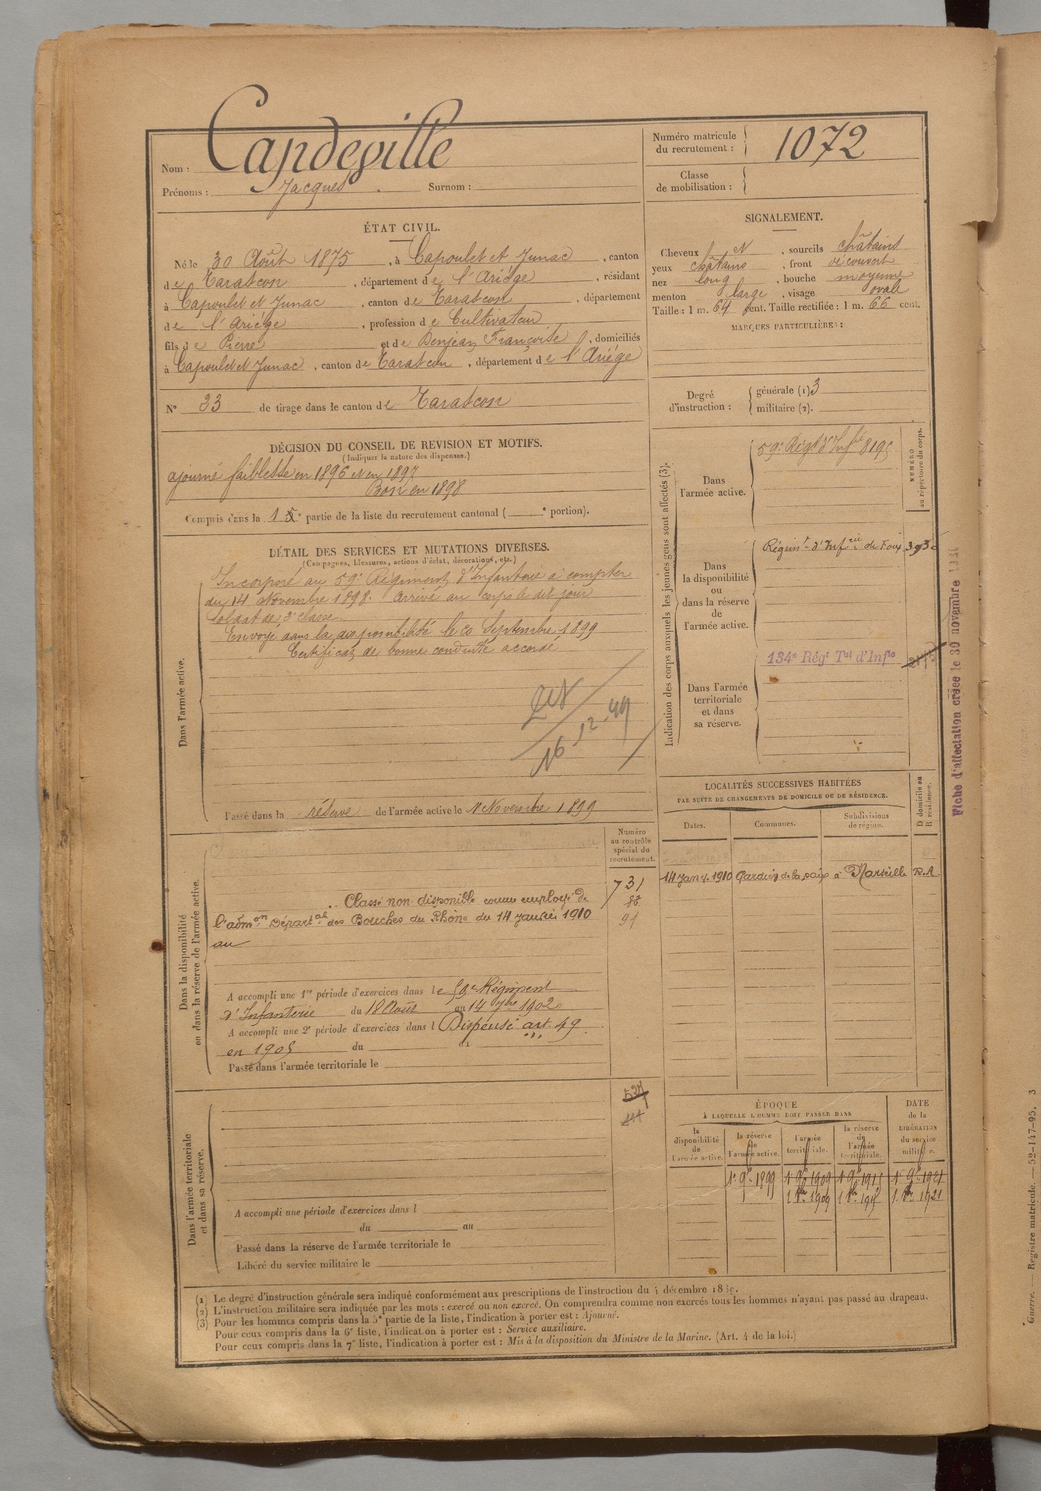 Nom : Capdeville
Prénoms : Jacques . Surnom :
Numéro matricule du recrutement : 1072
Classe de mobilisation :
ÉTAT CIVIL.
Né le 30 Août 1875, à Capoulet et Junac, canton
de Tarascon, département de l'Ariège, résidant
à Capoulet et Junac, canton de Tarascon, département
de l'Ariége, profession de Cultivateur
fils de Pierre et de Benjean Françoise, domiciliés
à Capoulet et Junac, canton de Tarascon, département de l'Ariége
N° 33 de tirage dans le canton de Tarascon
SIGNALEMENT.
Cheveux N, sourcils châtains
yeux châtains, front découvert
nez long, bouche moyenne
menton large, visage ovale
Taille : 1 m. 64 cent. Taille rectifiée : 1 m. 66 cent.
MARQUES PARTICULIÈRES :
Degré d'instruction : générale (1) 3
militaire (2).
DÉCISION DU CONSEIL DE REVISION ET MOTIFS.
(Indiquer la nature des dispenses.)
ajourné faiblesse en 1896 et en 1897
Bon en 1898
Compris dans la 1e partie de la liste du recrutement cantonal ( e portion).
DÉTAIL DES SERVICES ET MUTATIONS DIVERSES.
(Campagnes, blessures, actions d'éclat, décorations, etc.)
Dans l'armée active.
Incorporé au 59e Régiment d'Infanterie à compter
du 14 Novembre 1898. Arrivé au corps le dit jour
Soldat de 2e classe
Envoyé dans la disponibilité le 20 Septembre 1899
Certificat de bonne conduite accordé
16-12-49
Passé dans la réserve de l'armée active le 1 Novembre 1899
Indication des corps auxquels les jeunes gens sont affectés (3).
NUMÉRO au répertoire du corps.
Dans l'armée active.
59e Régt d'Infie 8195
Dans la disponibilité ou dans la réserve de l'armée active.
Régimt d'Infrie de Foix
Dans l'armée territoriale et dans sa réserve.
134e Régt Tal d'Infie
Fiche d'affectation créée le 30 novembre
LOCALITÉS SUCCESSIVES HABITÉES
PAR SUITE DE CHANGEMENTS DE DOMICILE OU DE RÉSIDENCE.
Dates. Communes. Subdivisions de région. D domicile ou R résidence.
14 janv. 1910 Gardien de la paix à Marseille
Numéro au contrôle spécial du recrutement.
731
88
91
Dans la disponibilité ou dans la réserve de l'armée active.
Classé non disponible comme employé de
l'admon Départale des Bouches du Rhône du 14 janvier 1910
au
A accompli une 1re période d'exercices dans le 59e Régiment
d'Infanterie du 18 Août au 14 7bre 1902
A accompli une 2e période d'exercices dans l Dispensé art. 49
en 1905 du au
Passé dans l'armée territoriale le
Dans l'armée territoriale et dans sa réserve.
A accompli une période d'exercices dans l
du au
Passé dans la réserve de l'armée territoriale le
Libéré du service militaire le
ÉPOQUE
À LAQUELLE L'HOMME DOIT PASSER DANS
DATE de la LIBÉRATION du service militaire.
la disponibilité de l'armée active. la réserve de l'armée active. l'armée territoriale. la réserve de l'armée territoriale.
1er 9bre 1899 1er 9bre 1909 1er 9bre 1915 1er 9bre 1921
1921
(1) Le degré d'instruction générale sera indiqué conformément aux prescriptions de l'instruction du 4 décembre 1889.
(2) L'instruction militaire sera indiquée par les mots : exercé ou non exercé. On comprendra comme non exercés tous les hommes n'ayant pas passé au drapeau.
(3) Pour les hommes compris dans la 5e partie de la liste, l'indication à porter est : Ajourné.
Pour ceux compris dans la 6e liste, l'indication à porter est : Service auxiliaire.
Pour ceux compris dans la 7e liste, l'indication à porter est : Mis à la disposition du Ministre de la Marine. (Art. 4 de la loi.)
Guerre. — Registre matricule. — 52-147-95. 3